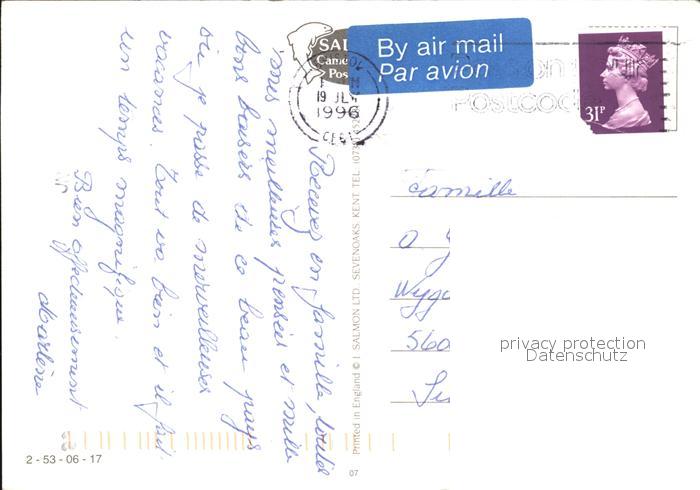 Recevez en famille, toutes
mes meilleures pensées et mille
bons baisers de ce beau pays
où je passe de merveilleuses
vacances. Tout va bien et il fait
un temps magnifique.
Bien affectueusement
Marlène
SAL
Came
Pos
By air mail
Par avion
19 JLY
1996
POSTCOD
31P
Famille
Wyg
560
privacy protection
Datenschutz
Printed in England © J. SALMON LTD. SEVENOAKS. KENT. TEL.
2 - 53 - 06 - 17
07